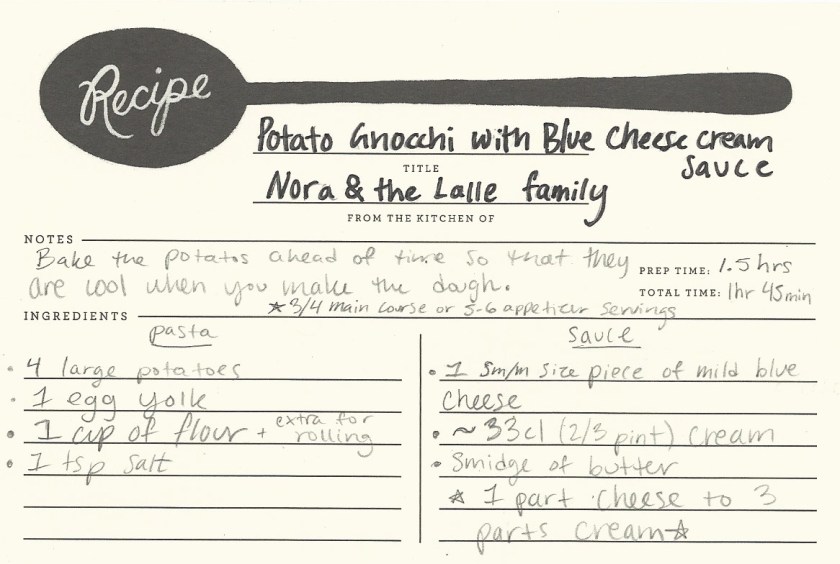 Recipe
Potato Gnocchi with Blue Cheese cream
sauce
TITLE
Nora & the Lalle family
FROM THE KITCHEN OF
NOTES
Bake the potatos ahead of time so that they
are cool when you make the dough.
PREP TIME: 1.5 hrs
TOTAL TIME: 1hr 45min
★ 3/4 main course or 5-6 appetizer servings
INGREDIENTS
pasta
• 4 large potatoes
• 1 egg yolk
• 1 cup of flour + extra for
rolling
• 1 tsp salt
sauce
• 1 sm/m size piece of mild blue
cheese
• ~33cl (2/3 pint) cream
• Smidge of butter
☆ 1 part cheese to 3
parts cream ☆